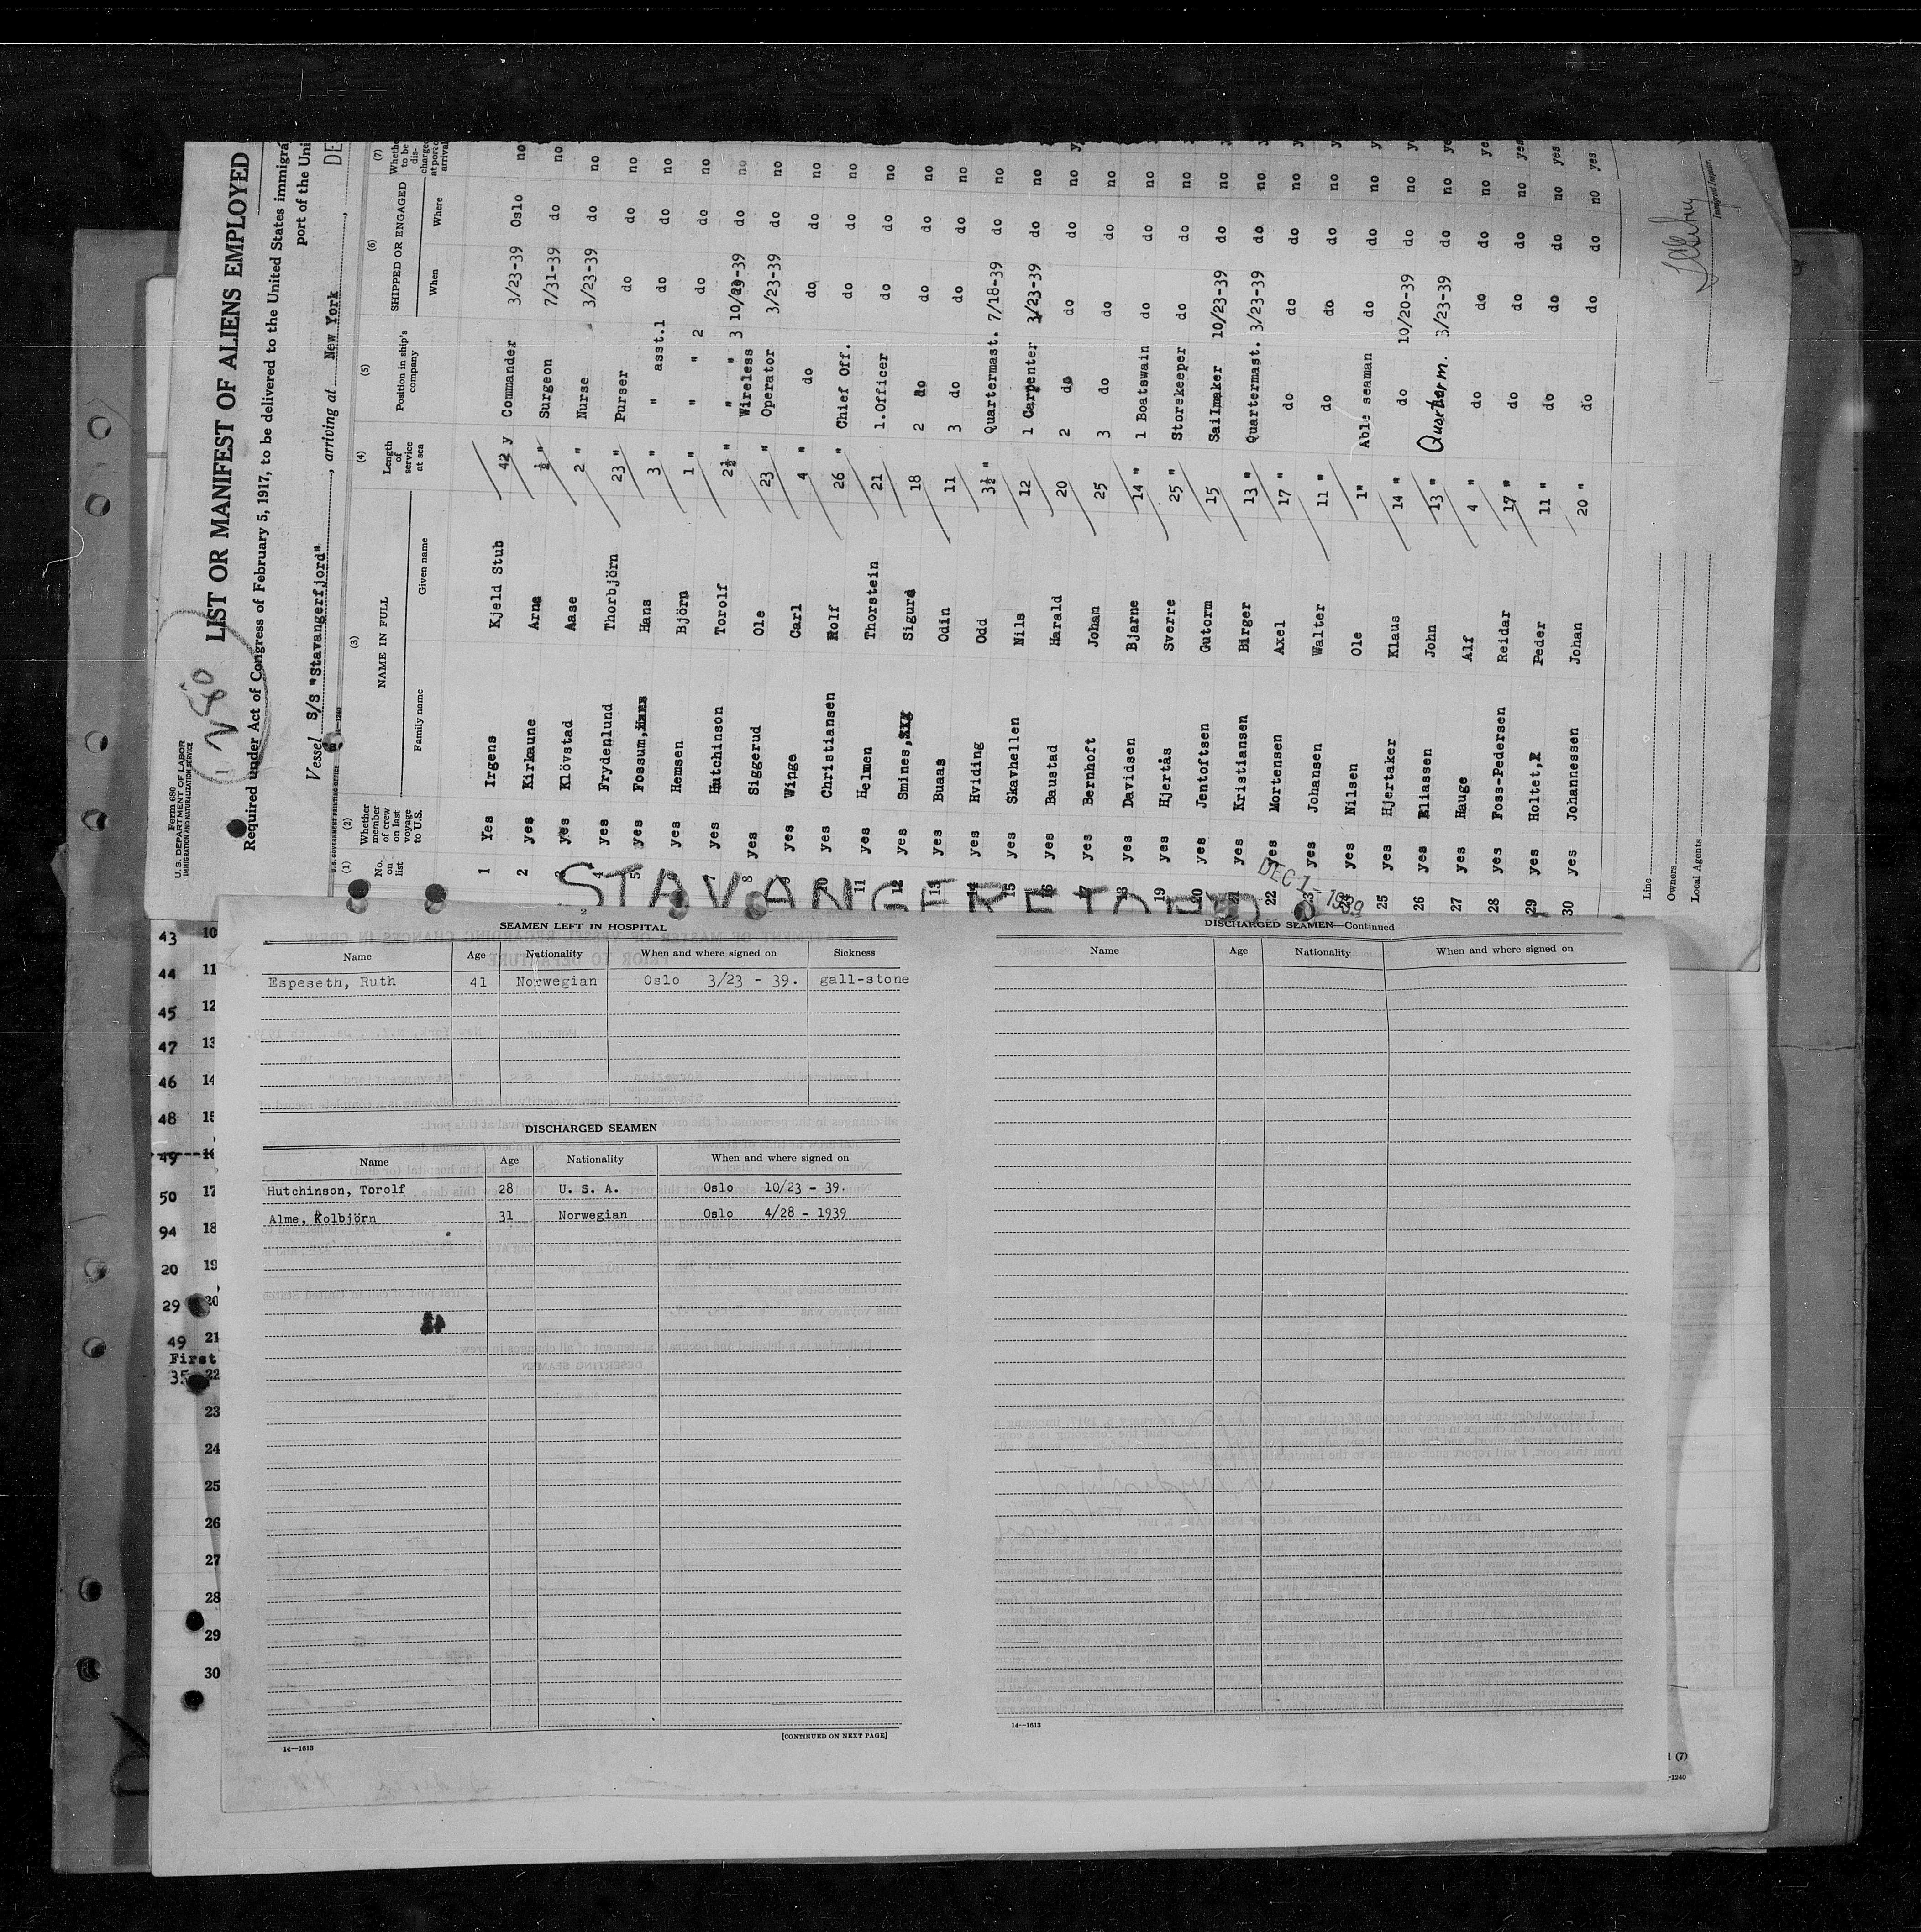 Form 680
U. S. DEPARTMENT OF LABOR
IMMIGRATION AND NATURALIZATION SERVICE
LIST OR MANIFEST OF ALIENS EMPLOYED
Required under Act of Congress of February 5, 1917, to be delivered to the United States immigra
port of the Uni
Vessel S/S "Stavangerfjord", arriving at New York, DE
(1) (2) (3) (4) (5) (6) (7)
No. on list Whether member of crew on last voyage to U.S. NAME IN FULL Family name Given name Length of service at sea Position in ship's company SHIPPED OR ENGAGED When Where Whether to be discharged at port of arrival
1 Yes Irgens Kjeld Stub 42 y Commander 3/23-39 Oslo no
2 yes Kirkaune Arne ½ " Surgeon 7/31-39 do no
3 yes Klövstad Aase 2 " Nurse 3/23-39 do no
4 yes Frydenlund Thorbjörn 23 " Purser do do no
5 yes Fossum, Hans 3 " " asst.1 do do no
yes Hemsen Björn 1 " " " 2 do do no
yes Hutchinson Torolf 2½ " " " 3 10/23-39 do no
8 yes Siggerud Ole 23 " Wireless Operator 3/23-39 do no
9 yes Winge Carl 4 " do do do no
10 yes Christiansen Rolf 26 " Chief Off. do do no
11 yes Helmen Thorstein 21 1.Officer do do no
12 yes Smines, Sigurd 18 2 do do do no
13 yes Buaas Odin 11 3 do do do no
14 yes Hviding Odd 3½ " Quartermast. 7/18-39 do no
15 yes Skavhellen Nils 12 1 Carpenter 3/23-39 do no
16 yes Baustad Harald 20 2 do do do no
17 yes Bernhoft Johan 25 3 do do do no
18 yes Davidsen Bjarne 14 " 1 Boatswain do do no
19 yes Hjertås Sverre 25 " Storekeeper do do no
20 yes Jentoftsen Gutorm 15 Sailmaker 10/23-39 do no
21 yes Kristiansen Birger 13 " Quartermast. 3/23-39 do no
22 yes Mortensen Axel 17 " do do do no
23 yes Johansen Walter 11 " do do do no
yes Nilsen Ole 1" Able seaman do do no
25 yes Hjertaker Klaus 14 " do 10/20-39 do no
26 yes Eliassen John 13 " Quarterm. 3/23-39 do no ye
27 yes Hauge Alf 4 " do do do no ye
28 yes Foss-Pedersen Reidar 17 " do do do no yes
29 yes Holtet, Peder 11 " do do do no yes
30 yes Johannessen Johan 20 " do do do no yes
Line
Owners
Local Agents
Immigrant Inspector.
STAVANGERFJORD
DEC 1 - 1939
43 10
44 11
45 12
47 13
46 14
48 15
49 16
50 17
94 18
20 19
29 20
49 21
First
35 22
23
24
25
26
27
28
29
30
2
SEAMEN LEFT IN HOSPITAL
Name Age Nationality When and where signed on Sickness
Espeseth, Ruth 41 Norwegian Oslo 3/23 - 39. gall-stone
DISCHARGED SEAMEN
Name Age Nationality When and where signed on
Hutchinson, Torolf 28 U. S. A. Oslo 10/23 - 39.
Alme, Kolbjörn 31 Norwegian Oslo 4/28 - 1939
[CONTINUED ON NEXT PAGE]
14—1613
DISCHARGED SEAMEN—Continued
Name Age Nationality When and where signed on
14—1613
(7)
-1240